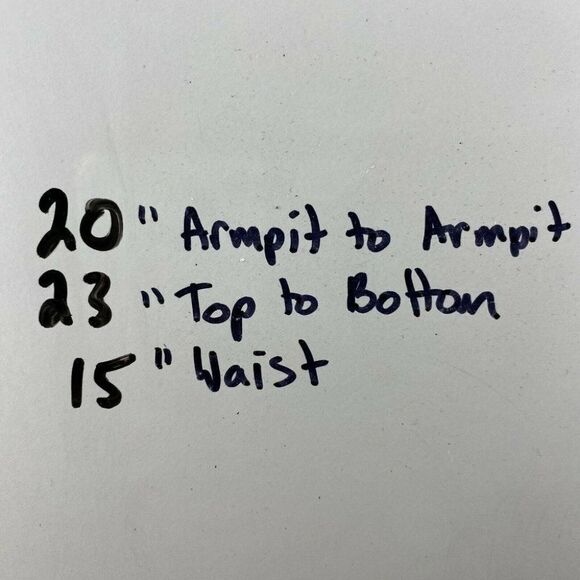 20" Armpit to Armpit
23" Top to Bottom
15" Waist